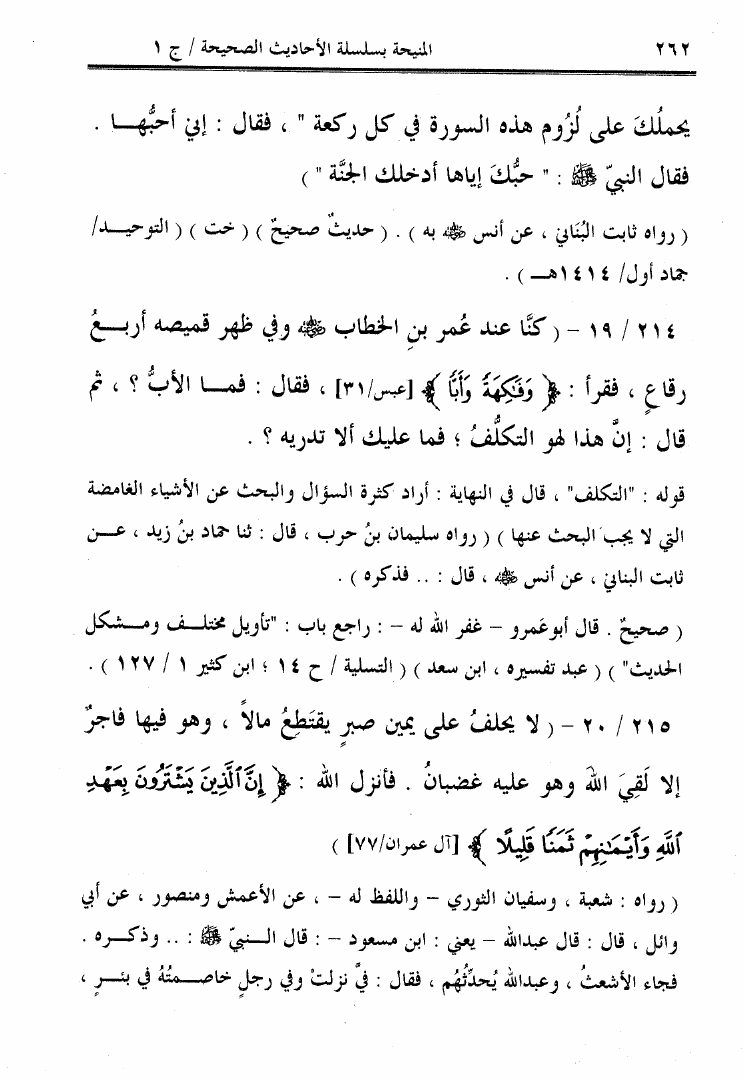 ٢٦٢ المنيحة بسلسلة الأحاديث الصحيحة / ج ١
يحملُكَ على لُزُوم هذه السورة في كل ركعة " ، فقال : إني أحبُّهـــا .
فقال النبيّ ﷺ : " حبُّكَ إياها أدخلك الجنَّة " )
( رواه ثابت البُنَاني ، عن أنس ﷺ به ) . ( حديثٌ صحيحٌ ) ( خت ) ( التوحيــد/
جماد أول/ ١٤١٤هــ ) .
٢١٤ / ١٩ – ( كنَّا عند عُمر بنِ الخطاب ﷺ وفي ظهر قميصه أربــعُ
رقاعٍ ، فقرأ : ﴿ وَفَٰكِهَةً وَأَبًّا ﴾ [عبس/٣١] ، فقال : فمـــا الأبُّ ؟ ، ثم
قال : إنَّ هذا لهو التكلُّفُ ؛ فما عليك ألا تدريه ؟ .
قوله : "التكلف" ، قال في النهاية : أراد كثرة السؤال والبحث عن الأشياء الغامضة
التي لا يجب البحث عنها ) ( رواه سليمان بنُ حرب ، قال : ثنا حماد بنُ زيد ، عــن
ثابت البناني ، عن أنس ﷺ ، قال : .. فذكره ) .
( صحيحٌ . قال أبوعَمرو – غفر الله له – : راجع باب : "تأويل مختلــف ومــشكل
الحديث" ) ( عبد تفسيره ، ابن سعد ) ( التسلية / ح ١٤ ؛ ابن كثير ١ / ١٢٧ ) .
٢١٥ / ٢٠ – ( لا يحلفُ على يمين صبرٍ يقتَطِعُ مالاً ، وهو فيها فاجرٌ
إلا لَقِيَ اللهَ وهو عليه غضبانُ . فأنزل الله : ﴿ إِنَّ ٱلَّذِينَ يَشْتَرُونَ بِعَهْدِ
ٱللَّهِ وَأَيْمَٰنِهِمْ ثَمَنًا قَلِيلًا ﴾ [آل عمران/٧٧] )
( رواه : شعبة ، وسفيان الثوري – واللفظ له – ، عن الأعمش ومنصور ، عن أبي
وائل ، قال : قال عبدالله – يعني : ابن مسعود – : قال الــنبيّ ﷺ : .. وذكــره .
فجاء الأشعثُ ، وعبدالله يُحدِّثُهُم ، فقال : فيَّ نزلتْ وفي رجلٍ خاصـــمتُهُ في بئــرٍ ،